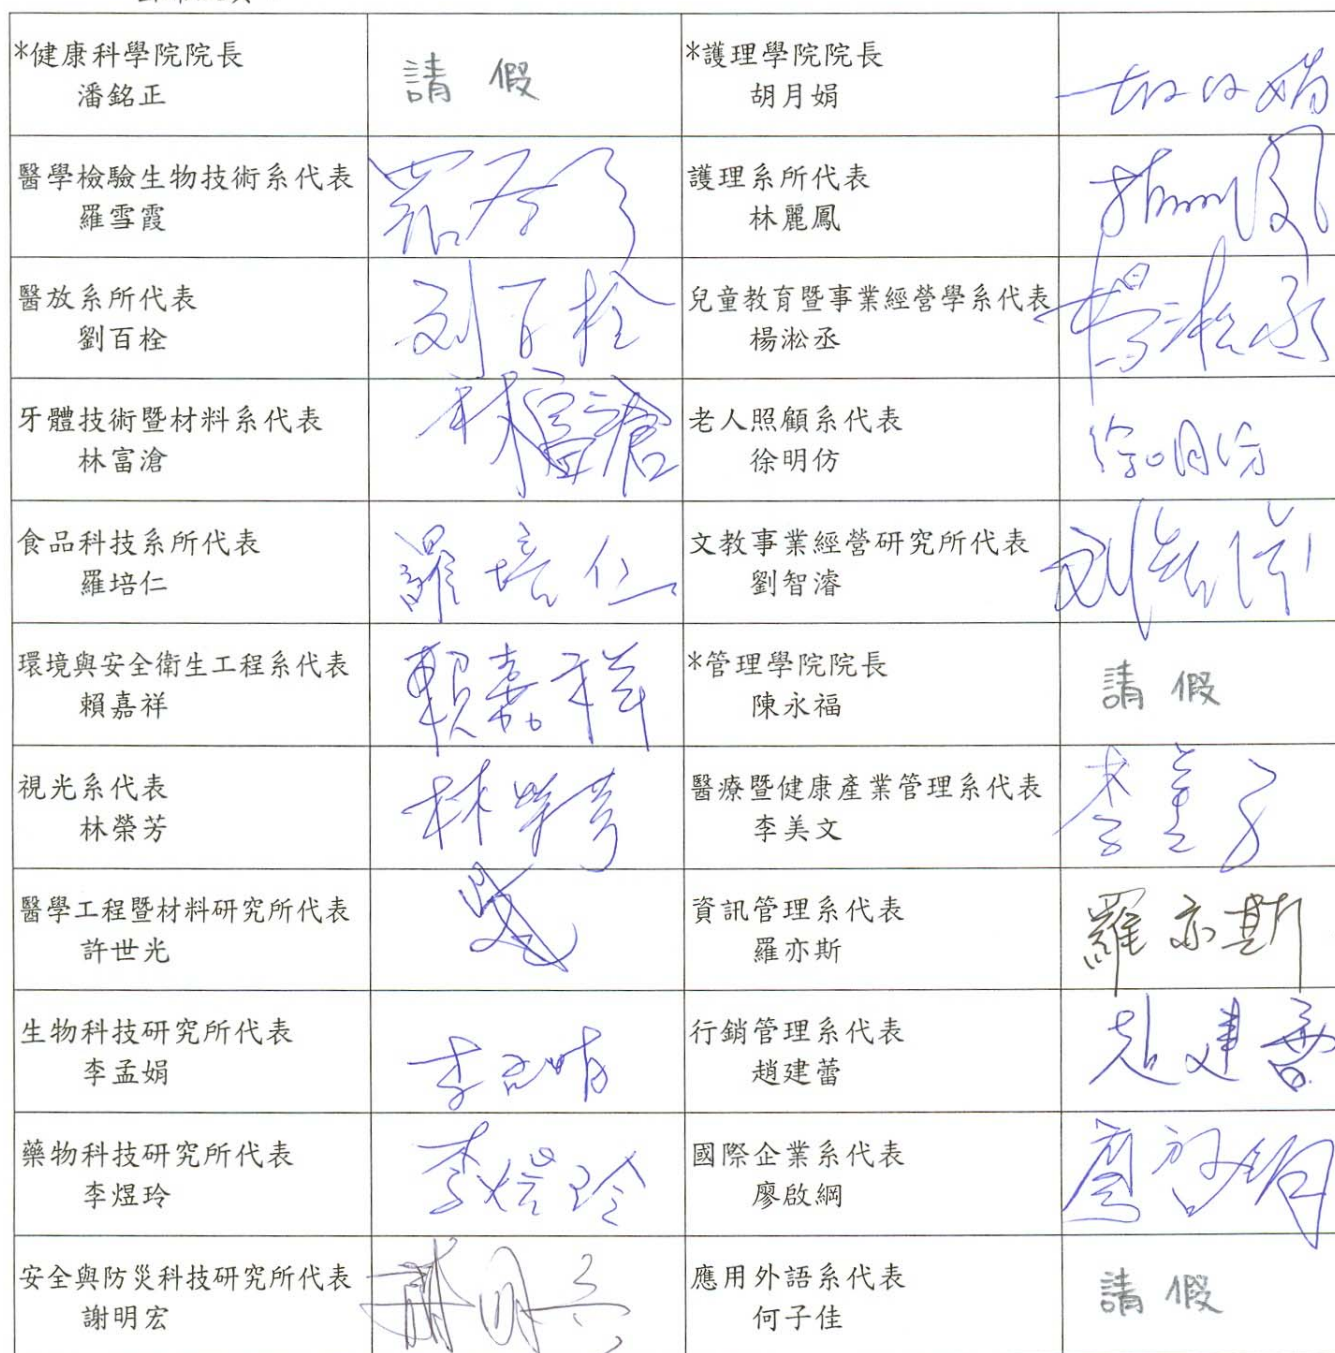 *健康科學院院長
潘銘正
請假
*護理學院院長
胡月娟
醫學檢驗生物技術系代表
羅雪霞
護理系所代表
林麗鳳
醫放系所代表
劉百栓
刘百栓
兒童教育暨事業經營學系代表
楊淞丞
楊淞丞
牙體技術暨材料系代表
林富滄
林富滄
老人照顧系代表
徐明仿
徐明仿
食品科技系所代表
羅培仁
羅培仁
文教事業經營研究所代表
劉智濬
環境與安全衛生工程系代表
賴嘉祥
賴嘉祥
*管理學院院長
陳永福
請假
視光系代表
林榮芳
林榮芳
醫療暨健康產業管理系代表
李美文
醫學工程暨材料研究所代表
許世光
資訊管理系代表
羅亦斯
羅亦斯
生物科技研究所代表
李孟娟
行銷管理系代表
趙建蕾
赵建蕾
藥物科技研究所代表
李煜玲
李煜玲
國際企業系代表
廖啟綱
安全與防災科技研究所代表
謝明宏
應用外語系代表
何子佳
請假